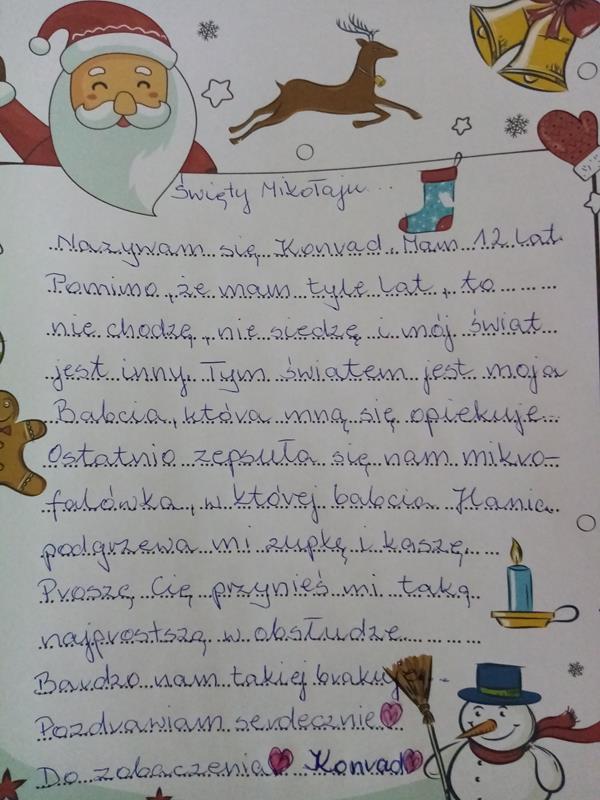 Święty Mikołaju...
Nazywam się Konrad. Mam 12 lat
Pomimo, że mam tyle lat, to
nie chodzę, nie siedzę i mój świat
jest inny. Tym światem jest moja
Babcia, która mną się opiekuje.
Ostatnio zepsuła się nam mikro-
falówka, w której babcia Hania
podgrzewa mi zupkę i kaszę.
Proszę Cię przynieś mi taką
najprostszą w obsłudze
Bardzo nam takiej brakuje.
Pozdrawiam serdecznie
Do zobaczenia Konrad